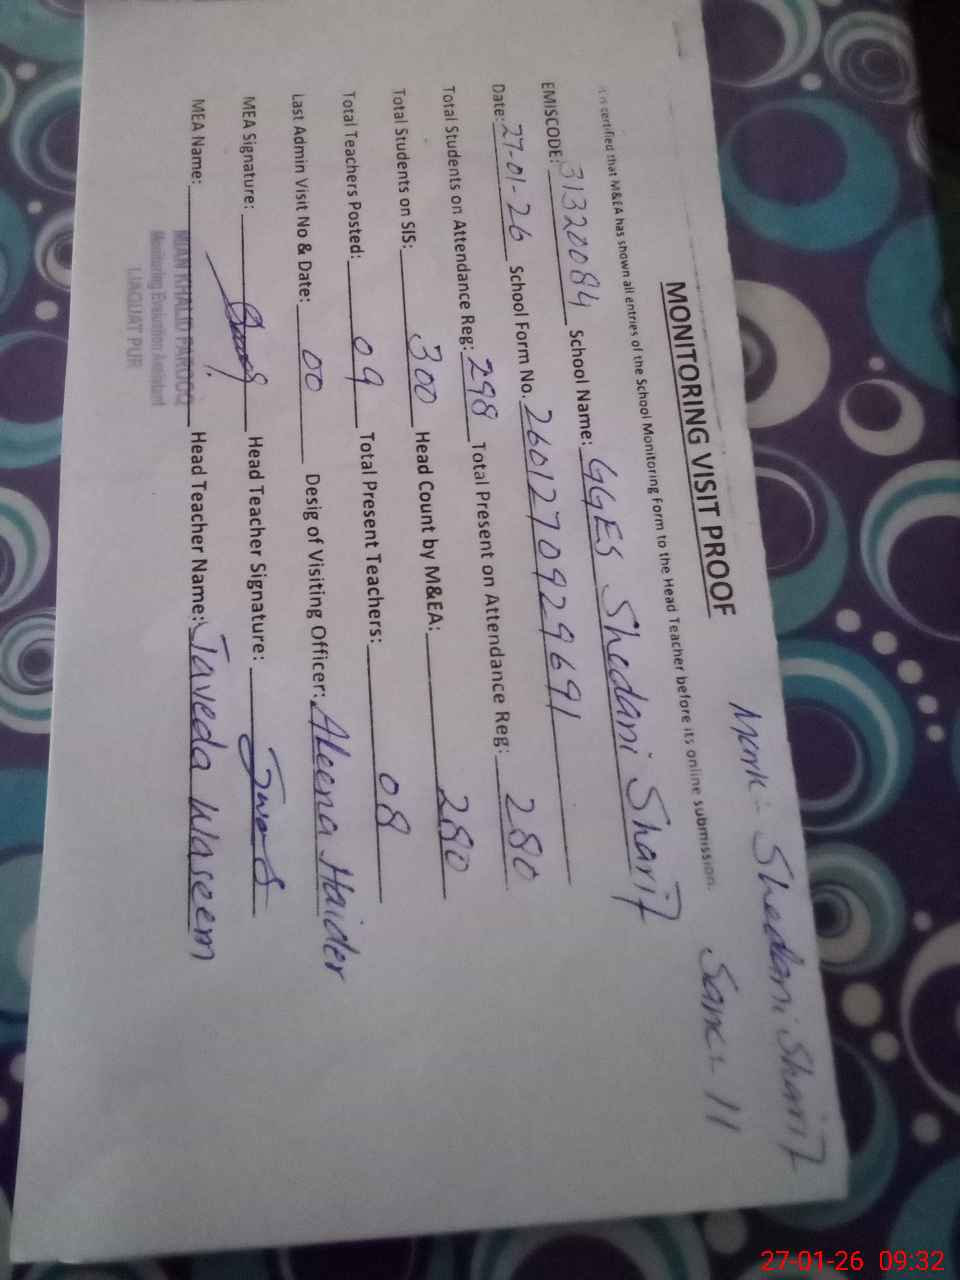 Mark:- Shedani Sharif
Sanc- 11
MONITORING VISIT PROOF
It is certified that M&EA has shown all entries of the School Monitoring Form to the Head Teacher before its online submission.
EMISCODE: 31320084 School Name: GGES Shedani Sharif
Date: 27-01-26 School Form No. 2601270929691
Total Students on Attendance Reg: 298 Total Present on Attendance Reg: 280
Total Students on SIS: 300 Head Count by M&EA: 280
Total Teachers Posted: 09 Total Present Teachers: 08
Last Admin Visit No & Date: 00 Desig of Visiting Officer: Aleena Haider
MEA Signature: Head Teacher Signature:
MEA Name: Head Teacher Name: Javeda Waseem
MIAN KHALID FAROOQ
Monitoring Evaluation Assistant
LIAQUAT PUR
27-01-26 09:32